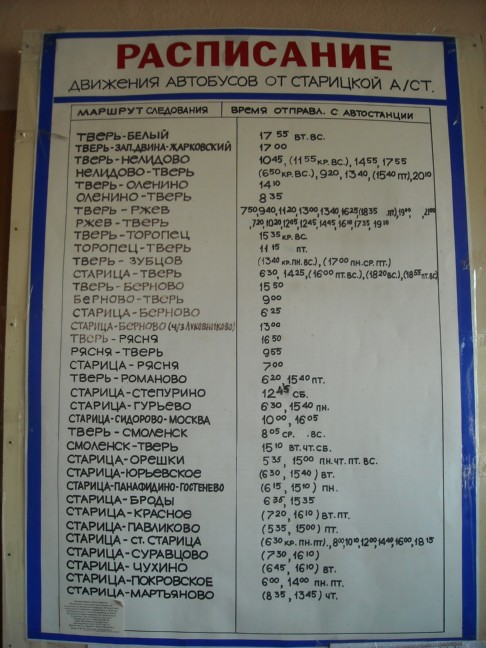 РАСПИСАНИЕ
ДВИЖЕНИЯ АВТОБУСОВ ОТ СТАРИЦКОЙ А/СТ.
МАРШРУТ СЛЕДОВАНИЯ ВРЕМЯ ОТПРАВЛ. С АВТОСТАНЦИИ
ТВЕРЬ-БЕЛЫЙ 17 55 ВТ. ВС.
ТВЕРЬ-ЗАП.ДВИНА-ЖАРКОВСКИЙ 17 00
ТВЕРЬ-НЕЛИДОВО 10 45, (11 55 КР. ВС.), 14 55, 17 55
НЕЛИДОВО-ТВЕРЬ (6 50 КР. ВС.), 9 20, 13 40, (15 40 ПТ), 20 10
ТВЕРЬ-ОЛЕНИНО 14 10
ОЛЕНИНО-ТВЕРЬ 8 35
ТВЕРЬ-РЖЕВ 7 50, 9 40, 11 20, 13 00, 13 40, 16 25 (18 35 ПТ), 19 00, 21 00
РЖЕВ-ТВЕРЬ , 7 20, 10 20, 12 05, 12 45, 14 45, 16 10, 17 35, 19 10
ТВЕРЬ-ТОРОПЕЦ 15 35 КР. ВС.
ТОРОПЕЦ-ТВЕРЬ 11 15 ПТ.
ТВЕРЬ-ЗУБЦОВ (13 40 КР. ПН. ВС.), (17 00 ПН. СР. ПТ.)
СТАРИЦА-ТВЕРЬ 6 30, 14 25, (16 00 ПТ. ВС.), (18 20 ВС.), (18 55 ПТ. ВС)
ТВЕРЬ-БЕРНОВО 15 50
БЕРНОВО-ТВЕРЬ 9 00
СТАРИЦА-БЕРНОВО 6 25
СТАРИЦА-БЕРНОВО (Ч/З ЛУКОВНИКОВО) 13 00
ТВЕРЬ-РЯСНЯ 16 50
РЯСНЯ-ТВЕРЬ 9 55
СТАРИЦА-РЯСНЯ 7 00
ТВЕРЬ-РОМАНОВО 6 20, 15 40 ПТ.
СТАРИЦА-СТЕПУРИНО 12 45 СБ.
СТАРИЦА-ГУРЬЕВО 6 30, 15 40 ПН.
СТАРИЦА-СИДОРОВО-МОСКВА 10 00, 16 05
ТВЕРЬ-СМОЛЕНСК 8 05 СР. ВС.
СМОЛЕНСК-ТВЕРЬ 15 10 ВТ. ЧТ. СБ.
СТАРИЦА-ОРЕШКИ 5 35, 15 00 ПН. ЧТ. ПТ. ВС.
СТАРИЦА-ЮРЬЕВСКОЕ (6 30, 15 40) ВТ.
СТАРИЦА-ПАНАФИДИНО-ГОСТЕНЕВО (6 15, 15 10) ПН.
СТАРИЦА-БРОДЫ 6 35, 15 35
СТАРИЦА-КРАСНОЕ (7 20, 16 10) ВТ. ПТ.
СТАРИЦА-ПАВЛИКОВО (5 35, 15 00) ПТ.
СТАРИЦА-СТ. СТАРИЦА (6 30 КР. ПН. ПТ.), 8 00, 10 10, 12 00, 14 40, 16 00, 18 15
СТАРИЦА-СУРАВЦОВО (7 30, 16 10)
СТАРИЦА-ЧУХИНО (6 45, 16 10) ВТ.
СТАРИЦА-ПОКРОВСКОЕ 6 00, 14 00 ПН. ПТ.
СТАРИЦА-МАРТЬЯНОВО (8 35, 13 45) ЧТ.